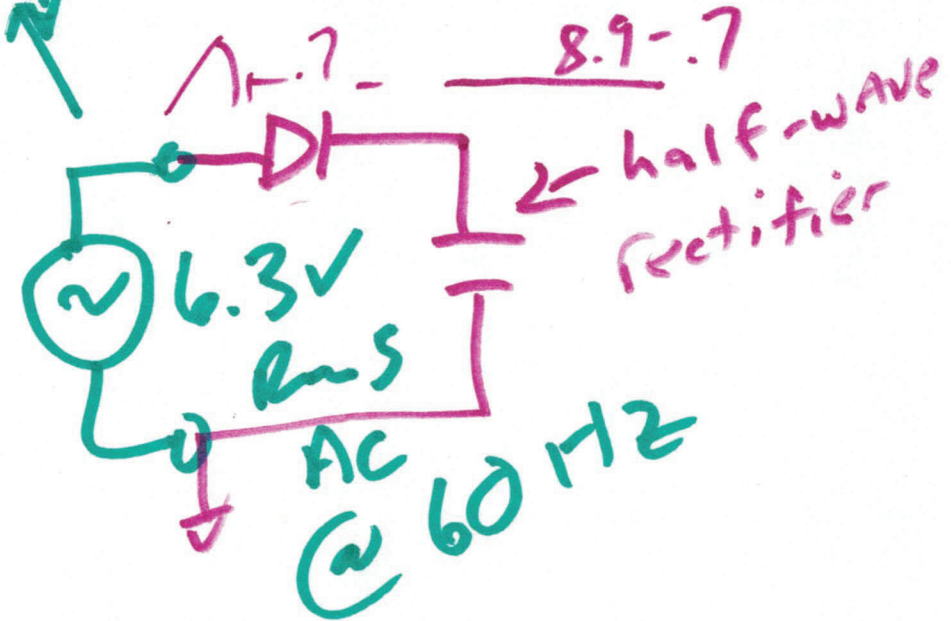 +.7-
8.9-.7
half-wave
rectifier
6.3V
RmS
AC
@ 60 Hz